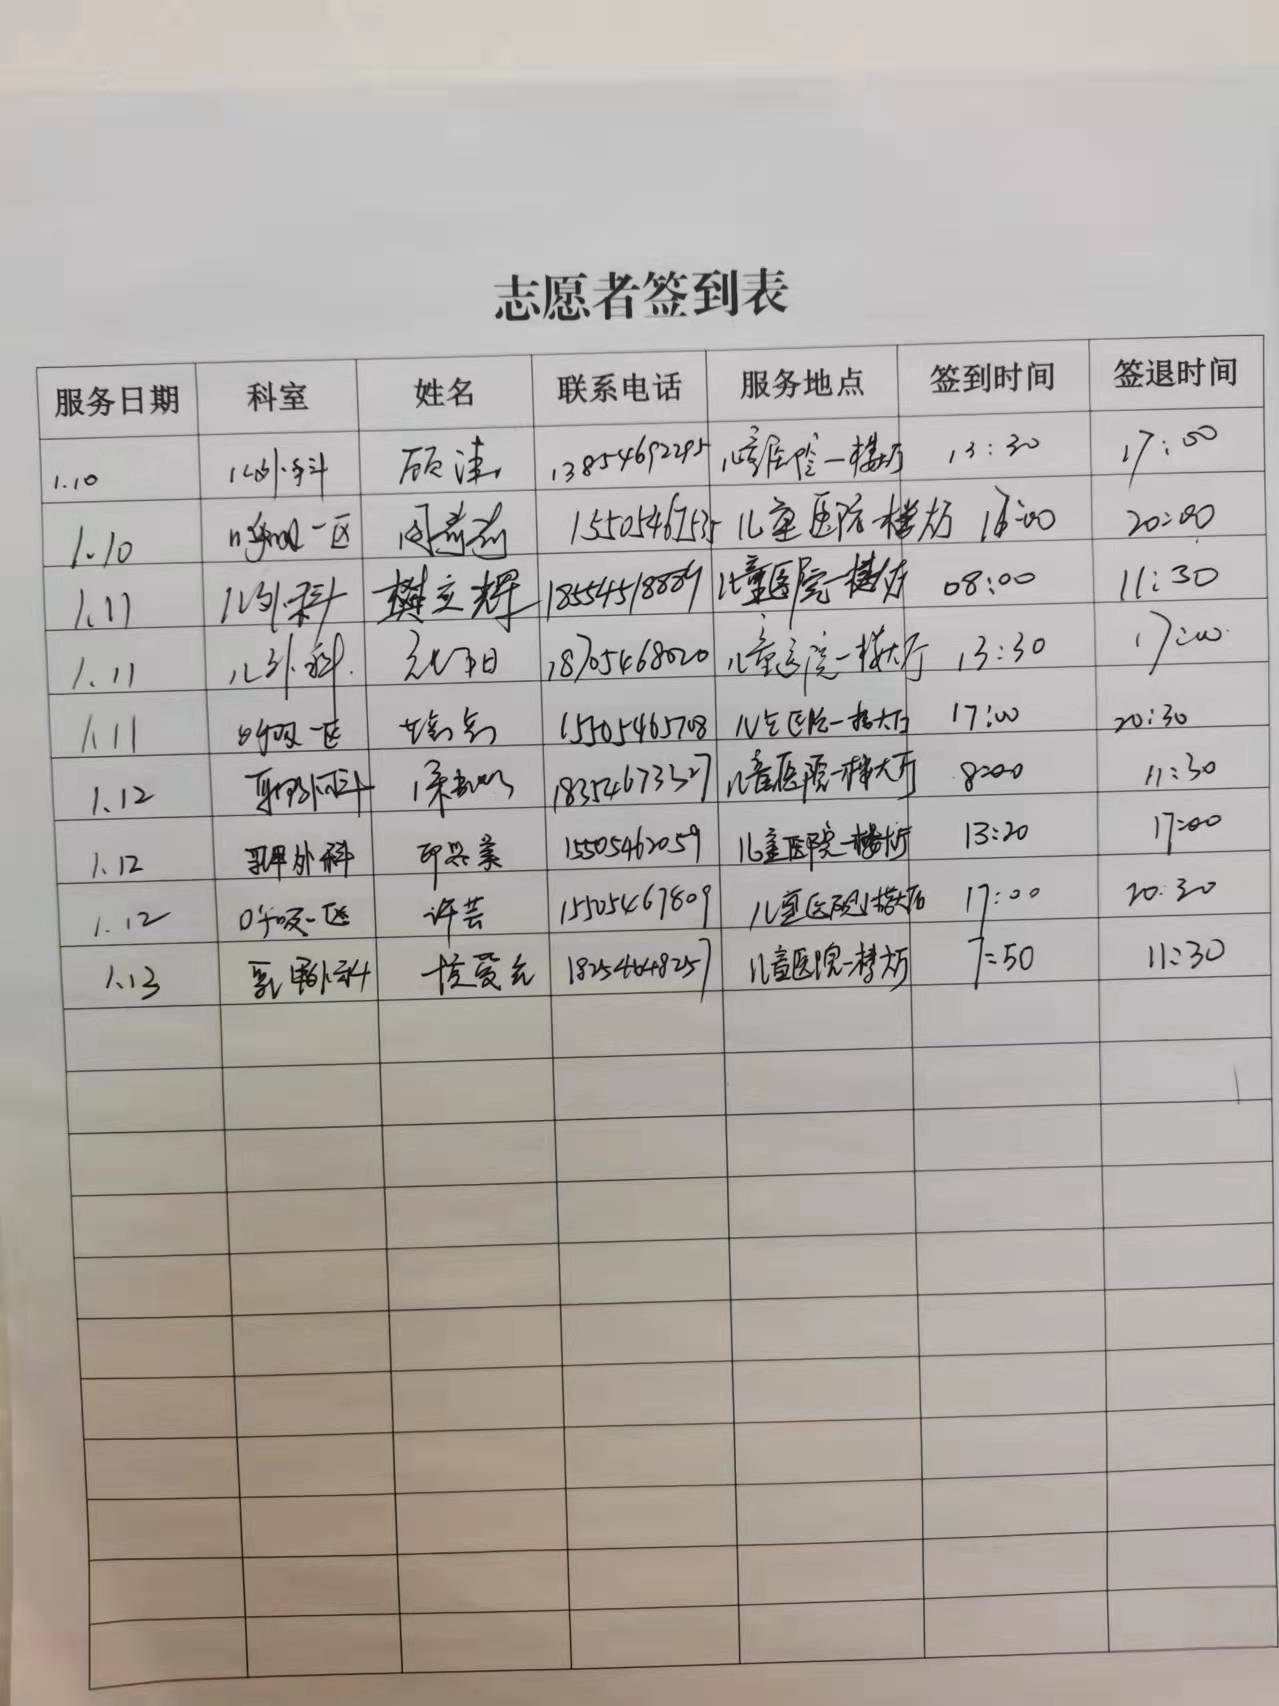 志愿者签到表
服务日期 科室 姓名 联系电话 服务地点 签到时间 签退时间
1.10 儿外科 顾涛 13854692295 儿童医院一楼大厅 13:30 17:00
1.10 呼吸一区 周 儿童医院一楼大厅 20:00
1.11 儿外科 樊立辉 18554518889 儿童医院一楼大厅 08:00 11:30
1.11 儿外科 18705468020 儿童医院一楼大厅 13:30 17:00
1.11 呼吸一区 15505465708 儿童医院一楼大厅 17:00 20:30
1.12 18354673527 儿童医院一楼大厅 8:00 11:30
1.12 乳甲外科 15505462059 儿童医院一楼大厅 13:20 17:00
1.12 呼吸一区 许芸 15505467809 儿童医院一楼大厅 17:00 20:30
1.13 乳甲外科 爱 18254648257 儿童医院一楼大厅 7:50 11:30